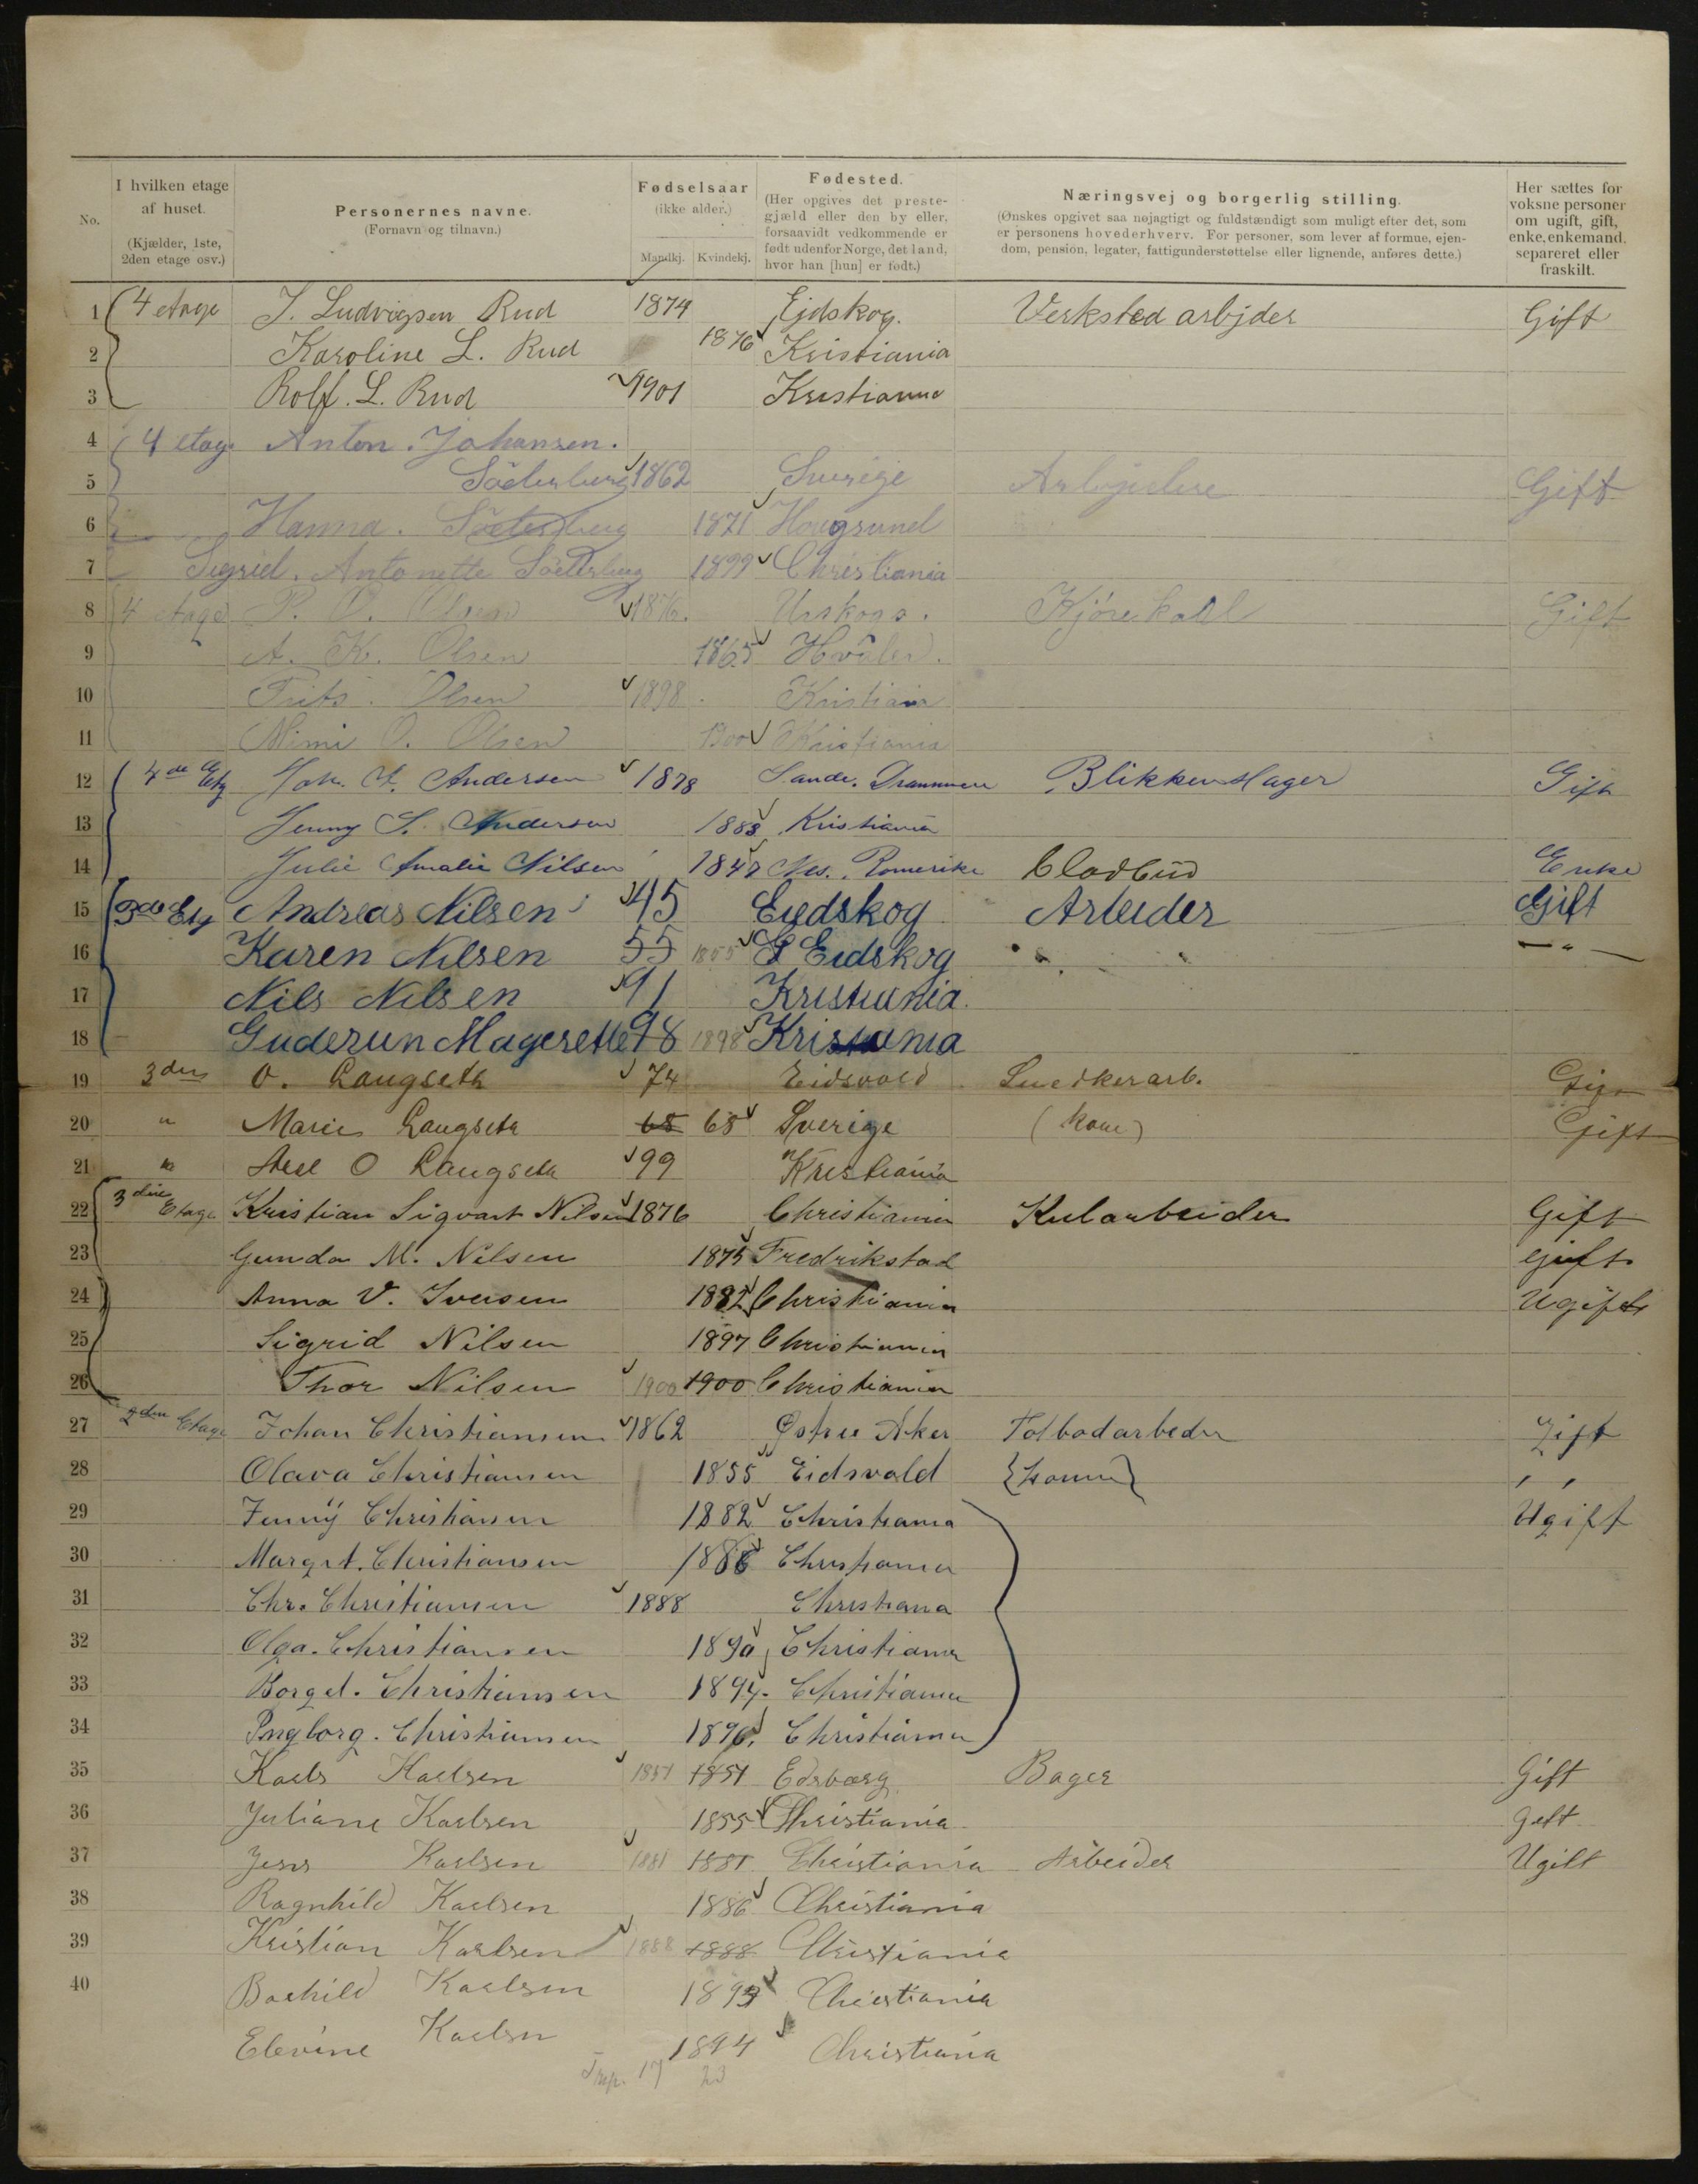 No.
I hvilken etage af huset.
(Kjælder, 1ste, 2den etage osv.)
Personernes navne.
(Fornavn og tilnavn.)
Fødselsaar
(ikke alder.)
Mandkj. Kvindekj.
Fødested.
(Her opgives det prestegjæld eller den by eller, forsaavidt vedkommende er født udenfor Norge, det land, hvor han [hun] er født.)
Næringsvej og borgerlig stilling.
(Ønskes opgivet saa nøjagtigt og fuldstændigt som muligt efter det, som er personens hovederhverv. For personer, som lever af formue, ejendom, pension, legater, fattigunderstøttelse eller lignende, anføres dette.)
Her sættes for voksne personer om ugift, gift, enke, enkemand, separeret eller fraskilt.
1 4 etage J. Ludvigsen Rud 1874 Ejdskog. Verksted arbjder Gift
2 Karoline L. Rud 1876 Kristiania
3 Rolf. L. Rud 1901 Kristiania
4 4 etage Anton. Johansen.
5 Söderberg 1862 Sverige Arbjdere Gift
6 Hanna. Söderberg 1871 Hougsund
7 Sigrid. Antonette Söderberg 1899 Christiania
8 4 etage P. O. Olsen 1876. Urskog. Kjørekarl Gift
9 A. K. Olsen 1865 Hvaler.
10 Frits. Olsen 1898. Kristiania
11 Mimi O. Olsen 1900 Kristiania
12 4de Etg Joh. A. Andersen 1878 Sande. Drammen Blikkenslager Gift
13 Jenny S. Andersen 1883 Kristiania
14 Julie Amalie Nilsen 1847 Nes. Romerike Enke
15 3de Etg Andreas Nilsen 45 Eydskog Arbeider Gift
16 Karen Nilsen 55 1855 S Eidskog " — " —
17 Nils Nilsen 91 Kristiania.
18 Guderun Magerette 98 1898 Kristiania
19 3die O. Laugseth 74 Eidsvold Snedkerarb. Gift
20 " Marie Laugseth 68 68 Sverige (Kone) Gift
21 " O Laugseth 99 Kristiania
22 3die Etage Kristian Sigvart Nilsen 1876 Christiania Kularbeider Gift
23 Gunda M. Nilsen 1875 Fredrikstad Gift
24 Anna V. Iversen 1882 Christiania Ugift
25 Sigrid Nilsen 1897 Christiania
26 Thor Nilsen 1900 1900 Christiania
27 2den Etage Johan Christiansen 1862 Østre Aker Tolbodarbeder Gift
28 Olava Christiansen 1855 Eidsvold {konne} " "
29 Jenny Christiansen 1882 Christiania Ugift
30 Margit. Christiansen 1886 Christiania
31 Chr. Christiansen 1888 Christiana
32 Olga. Christiansen 1890 Christiania
33 Borgel. Christiansen 1894. Christiania
34 Ingborg. Christiansen 1896. Christiania
35 Karls Karlsen 1851 1851 Edsbærg Bager Gift
36 Juliane Karlsen 1855 Christiania Geft
37 Jens Karlsen 1881 1881 Christiania Arbeider Ugilt
38 Ragnhild Karlsen 1886 Christiania
39 Kristian Karlsen 1888 1888 Christiania
40 Borhild Karlsen 1893 Christiania
Elevine Karlsn 1894 Christiania
17 23